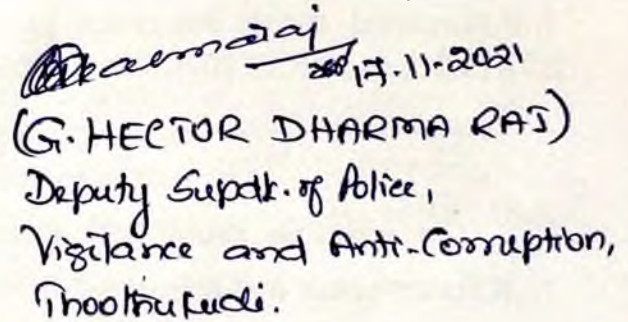 Dharmaraj
17-11-2021
(G. HECTOR DHARMA RAJ)
Deputy Supdt. of Police,
Vigilance and Anti-Corruption,
Thoothukudi.